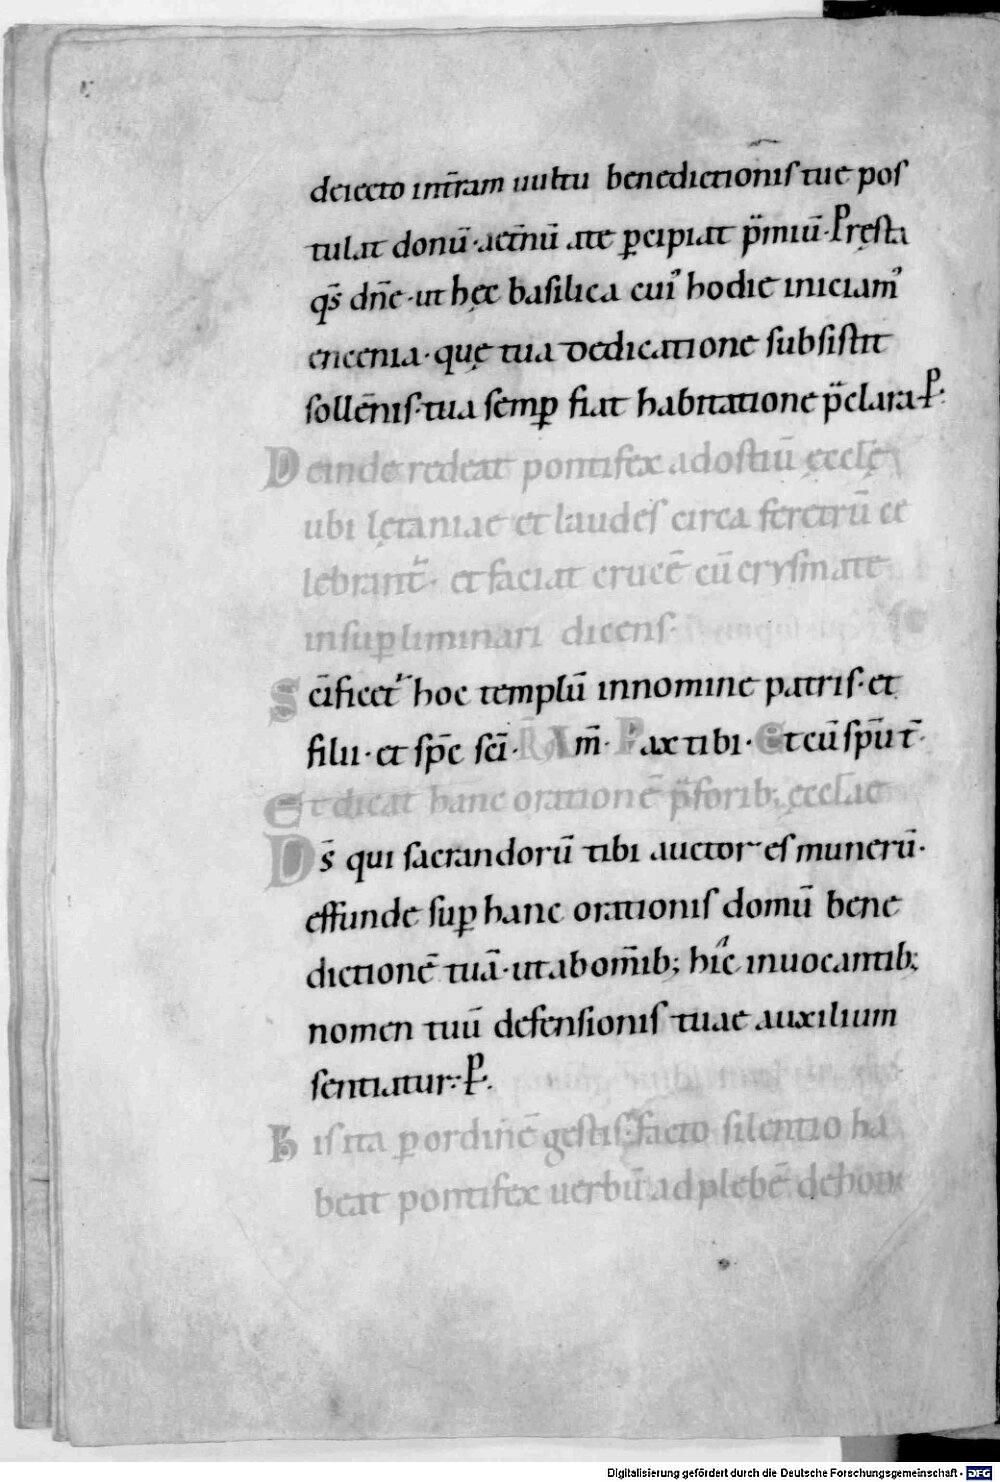 deiecto int̄ram uultu benedictionis tue pos
tulat donū · aet̄nū ate ꝑcipiat p̄miū · Pręsta
qs̄ dn̄e · ut hęc basilica cui᾽ hodie iniciam᾽
encenia · quę tua dedicatione subsistit
sollēnis · tua semꝑ fiat habitatione p̄clara · P̄.
Deinde redeat pontifex ad ostiū ęcclę
ubi lętaniae et laudes circa feretrū ce
lebrant̄ · et faciat crucē cū crysmate
in suꝑliminari dicens ·
Sc̄ificet᾽ hoc templū in nomine patris · et
filii · et sp̄c sc̄i · R̄ Am̄ · Pax tibi · Et cū sp̄u t̄ ·
Et dicat hanc orationē p̄ forib; ęcclae
Ds̄ qui sacrandorū tibi auctor es munerū ·
effunde suꝑ hanc orationis domū bene
dictionē tuā · ut ab om̄ib; hic inuocantib;
nomen tuū defensionis tuae auxilium
sentiatur · P̄.
His ita ꝑ ordinē gestis · facto silentio ha
beat pontifex uerbū ad plebē de hono
Digitalisierung gefördert durch die Deutsche Forschungsgemeinschaft - DFG